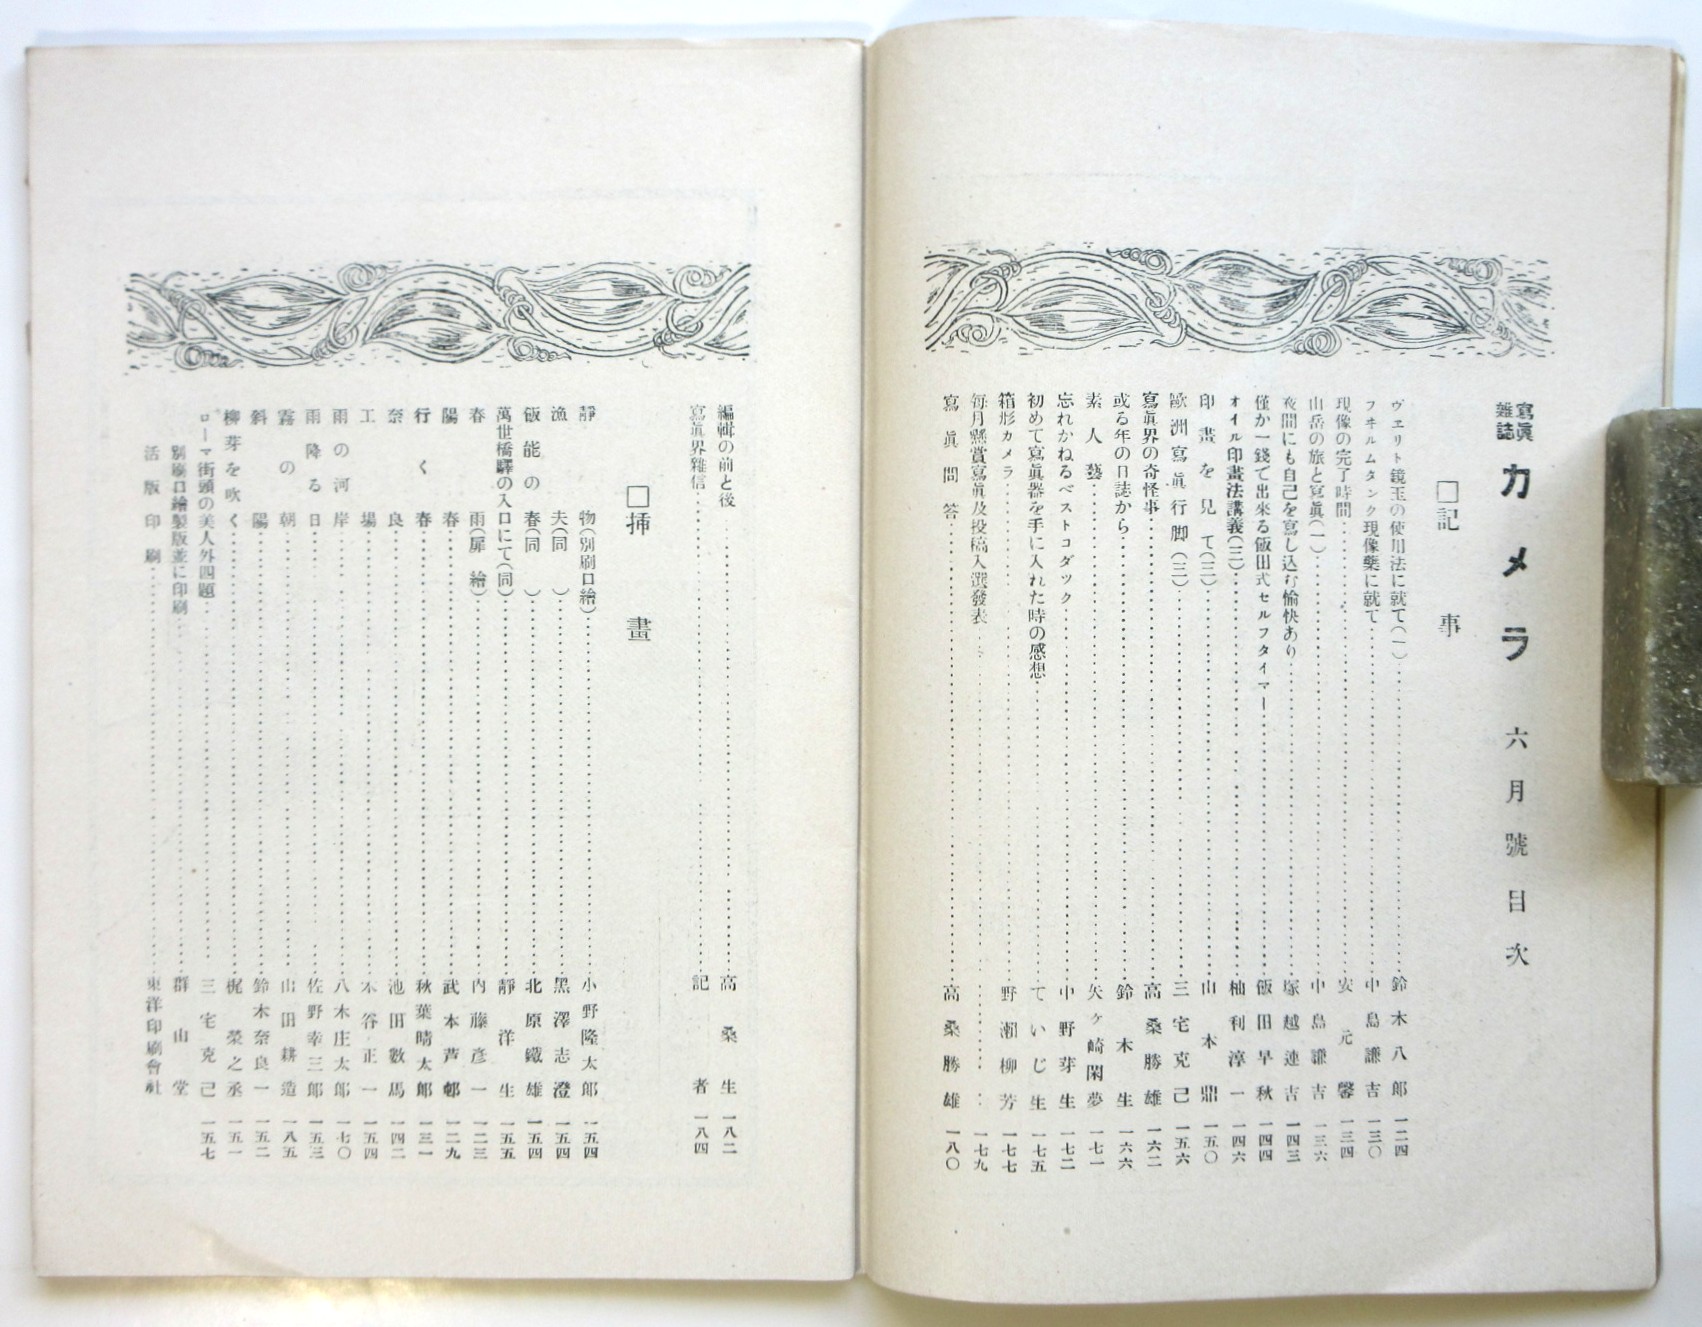 寫眞雜誌 カメラ 六月號目次
□記事
ヴエリト鏡玉の使用法に就て(一)……鈴木八郎 一二四
フヰルムタンク現像藥に就て……中島謙吉 一三〇
現像の完了時間……安元馨 一三四
山岳の旅と寫眞(一)……中島謙吉 一三六
夜間にも自己を寫し込む愉快あり……塚越連吉 一四三
僅か一錢で出來る飯田式セルフタイマー……飯田早秋 一四四
オイル印畫法講義(三)……柚利淳一 一四六
印畫を見て(三)……山本鼎 一五〇
歐洲寫眞行脚(三)……三宅克己 一五六
寫眞界の奇怪事……高桑勝雄 一六二
或る年の日誌から……鈴木生 一六六
素人藝……矢ヶ崎閑夢 一七一
忘れかねるベストコダック……中野芽生 一七二
初めて寫眞器を手に入れた時の感想……ていじ生 一七五
箱形カメラ……野瀨柳芳 一七七
每月懸賞寫眞及投稿入選發表…… 一七九
寫眞問答……高桑勝雄 一八〇
編輯の前と後……高桑生 一八二
寫眞界雜信……記者 一八四
□挿畫
靜物(別刷口繪)……小野隆太郞 一五四
漁夫(同)……黑澤志澄 一五四
飯能の春(同)……北原鐵雄 一五四
萬世橋驛の入口にて(同)……靜洋生 一五五
春雨(扉繪)……內藤彥一 一二三
陽春……武本芦邨 一二九
行く春……秋葉晴太郞 一三一
奈良……池田數馬 一四二
工場……木谷正一 一五四
雨の河岸……八木庄太郞 一七〇
雨降る日……佐野幸三郞 一五三
霧の朝……山田耕造 一八五
斜陽……鈴木奈良一 一五二
柳芽を吹く……梶榮之丞 一五一
ローマ街頭の美人外四題……三宅克己 一五七
別刷口繪製版並に印刷……群山堂
活版印刷……東洋印刷會社